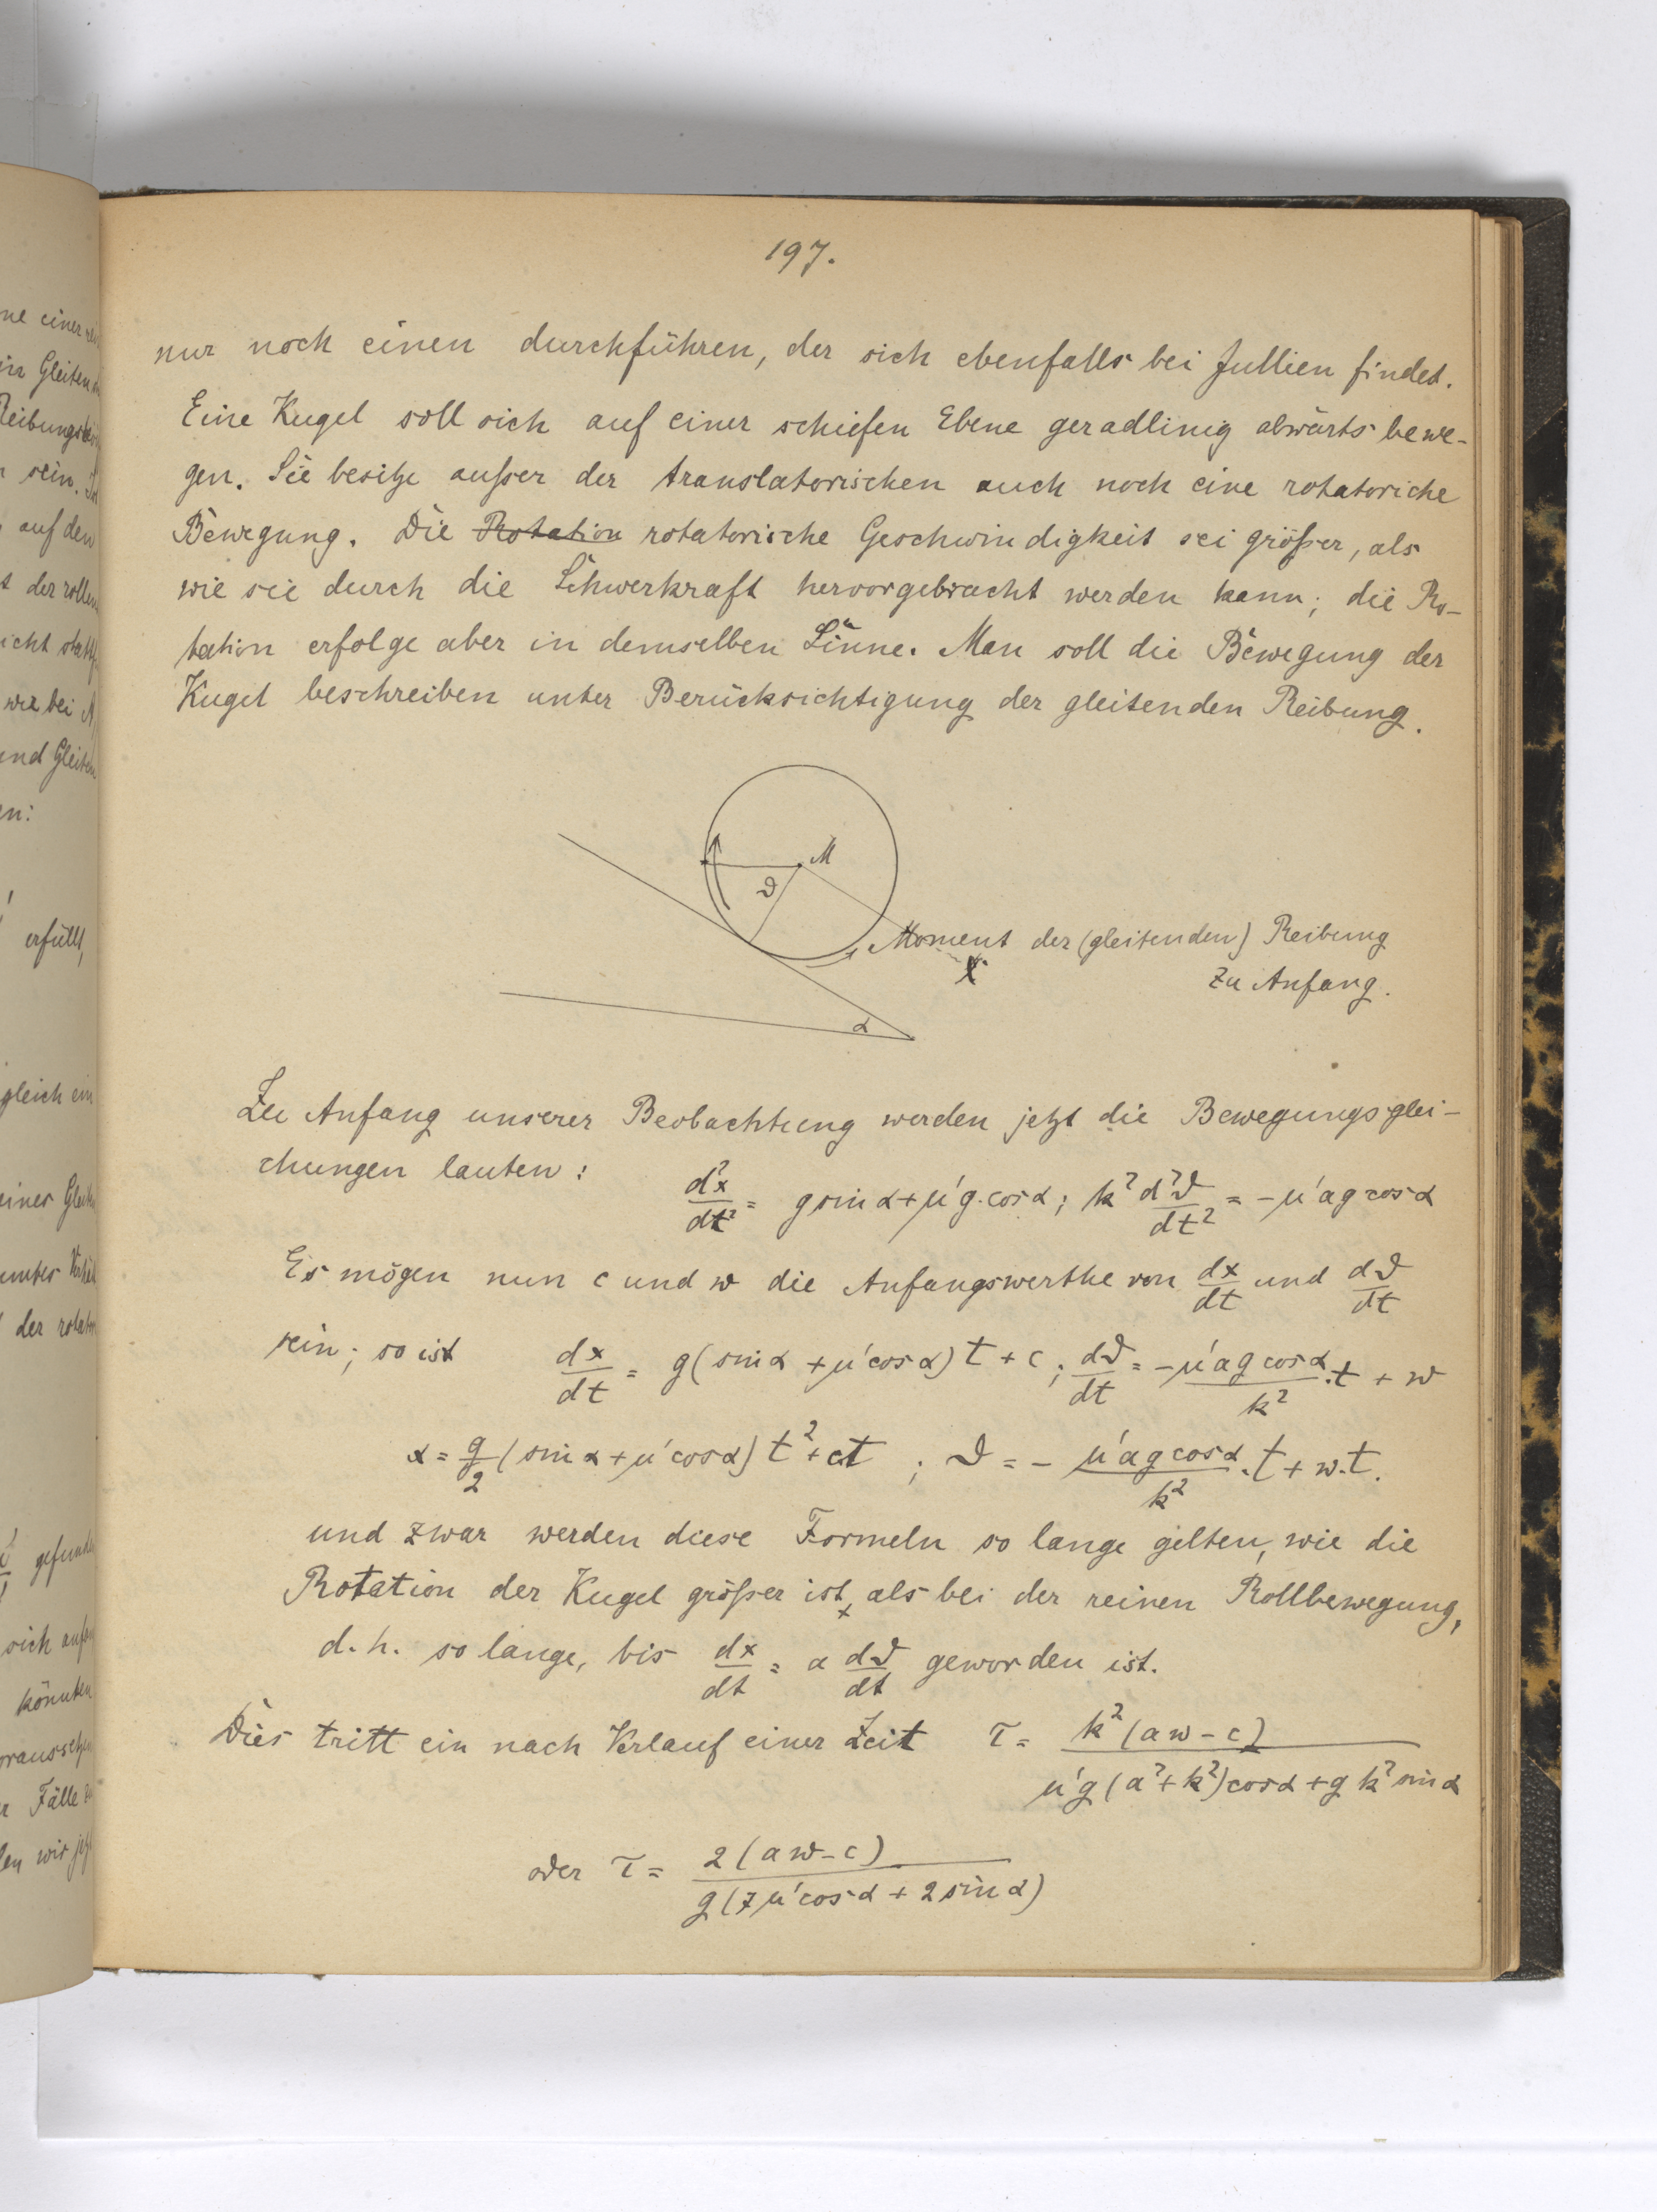 197.
nur noch einen durchführen, der sich ebenfalls bei Jullien findet.
Eine Kugel soll sich auf einer schiefen Ebene geradlinig abwärts bewe-
gen. Sie besitze außer der translatorischen auch noch eine rotatoriche
Bewegung. Die Rotation rotatorische Geschwindigkeit sei größer, als
wie sie durch die Schwerkraft hervorgebracht werden kann; die Ro-
tation erfolge aber in demselben Sinne. Man soll die Bewegung der
Kugel beschreiben unter Berücksichtigung der gleitenden Reibung.
M
ϑ
Moment der (gleitenden) Reibung
X
zu Anfang.
α
Zu Anfang unserer Beobachtung werden jetzt die Bewegungsglei-
chungen lauten: d²x/dt² = g sin α + μ'g·cos α; k² d²ϑ/dt² = -μ'a g cos α
Es mögen nun c und w die Anfangswerthe von dx/dt und dϑ/dt
sein; so ist dx/dt = g(sin α + μ'cos α) t + c; dϑ/dt = -μ'a g cos α/k² ·t + w
x = g/2 (sin α + μ'cos α) t² + ct ; ϑ = - μ'a g cos α/k² ·t + w·t.
und zwar werden diese Formeln so lange gelten, wie die
Rotation der Kugel größer ist, als bei der reinen Rollbewegung,
d. h. so lange, bis dx/dt = a dϑ/dt geworden ist.
Dies tritt ein nach Verlauf einer Zeit τ = k²(aw - c)/μ'g(a²+k²)cos α + g k² sin α
oder τ = 2(aw - c)/g(7μ'cos α + 2 sin α)